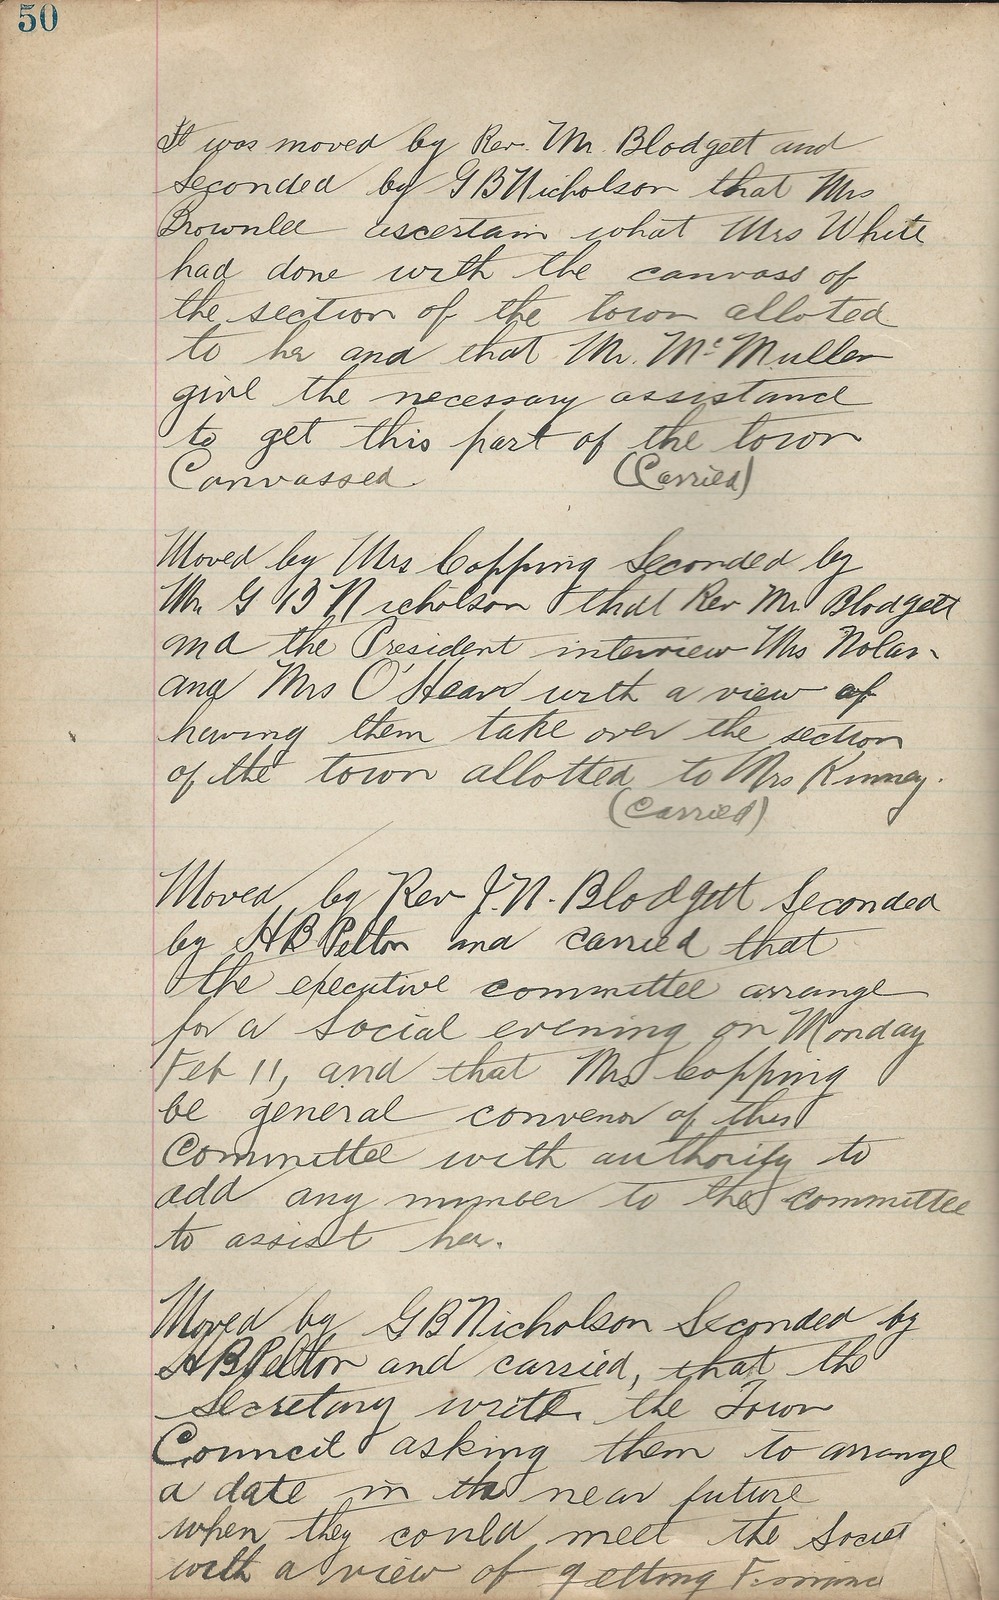 50
It was moved by Rev. Mr. Blodgett and
seconded by G B Nicholson that Mrs
Brownlee ascertain what Mrs White
had done with the canvass of
the section of the town alloted
to her and that Mr. McMullen
give the necessary assistance
to get this part of the town
Canvassed. (Carried)
Moved by Mrs Copping Seconded by
Mr. G B Nicholson that Rev Mr. Blodgett
and the President interview Mrs Nolan
and Mrs O'Hearn with a view of
having them take over the section
of the town allotted to Mrs Kinney.
(Carried)
Moved by Rev J. N. Blodgett Seconded
by H B Pelton and carried that
the executive committee arrange
for a social evening on Monday
Feb 11, and that Mrs Copping
be general convenor of this
Committee with authority to
add any number to the committee
to assist her.
Moved by G B Nicholson Seconded by
H B Pelton and carried, that the
Secretary write the Town
Council asking them to arrange
a date in the near future
when they could meet the Societ
with a view of getting